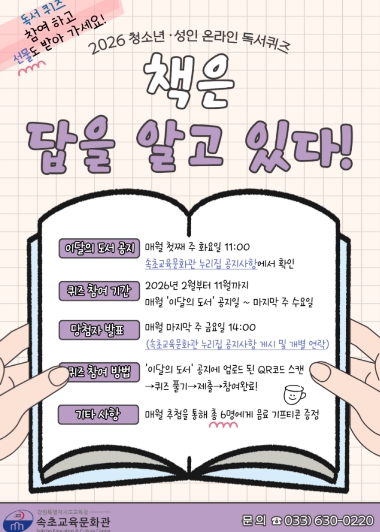 독서 퀴즈
참여 하고
선물도 받아 가세요!
2026 청소년·성인 온라인 독서퀴즈
책은
답을 알고 있다!
이달의 도서 공지 매월 첫째 주 화요일 11:00
속초교육문화관 누리집 공지사항에서 확인
퀴즈 참여 기간 2026년 2월부터 11월까지
매월 '이달의 도서' 공지일 ~ 마지막 주 수요일
당첨자 발표 매월 마지막 주 금요일 14:00
(속초교육문화관 누리집 공지사항 게시 및 개별 연락)
퀴즈 참여 방법 '이달의 도서' 공지에 업로드 된 QR코드 스캔
→퀴즈 풀기→제출→참여완료!
기타 사항 매월 추첨을 통해 총 6명에게 음료 기프티콘 증정
강원특별자치도교육청
속초교육문화관
Sokcho Education & Culture Center
문의 ☎033) 630-0220